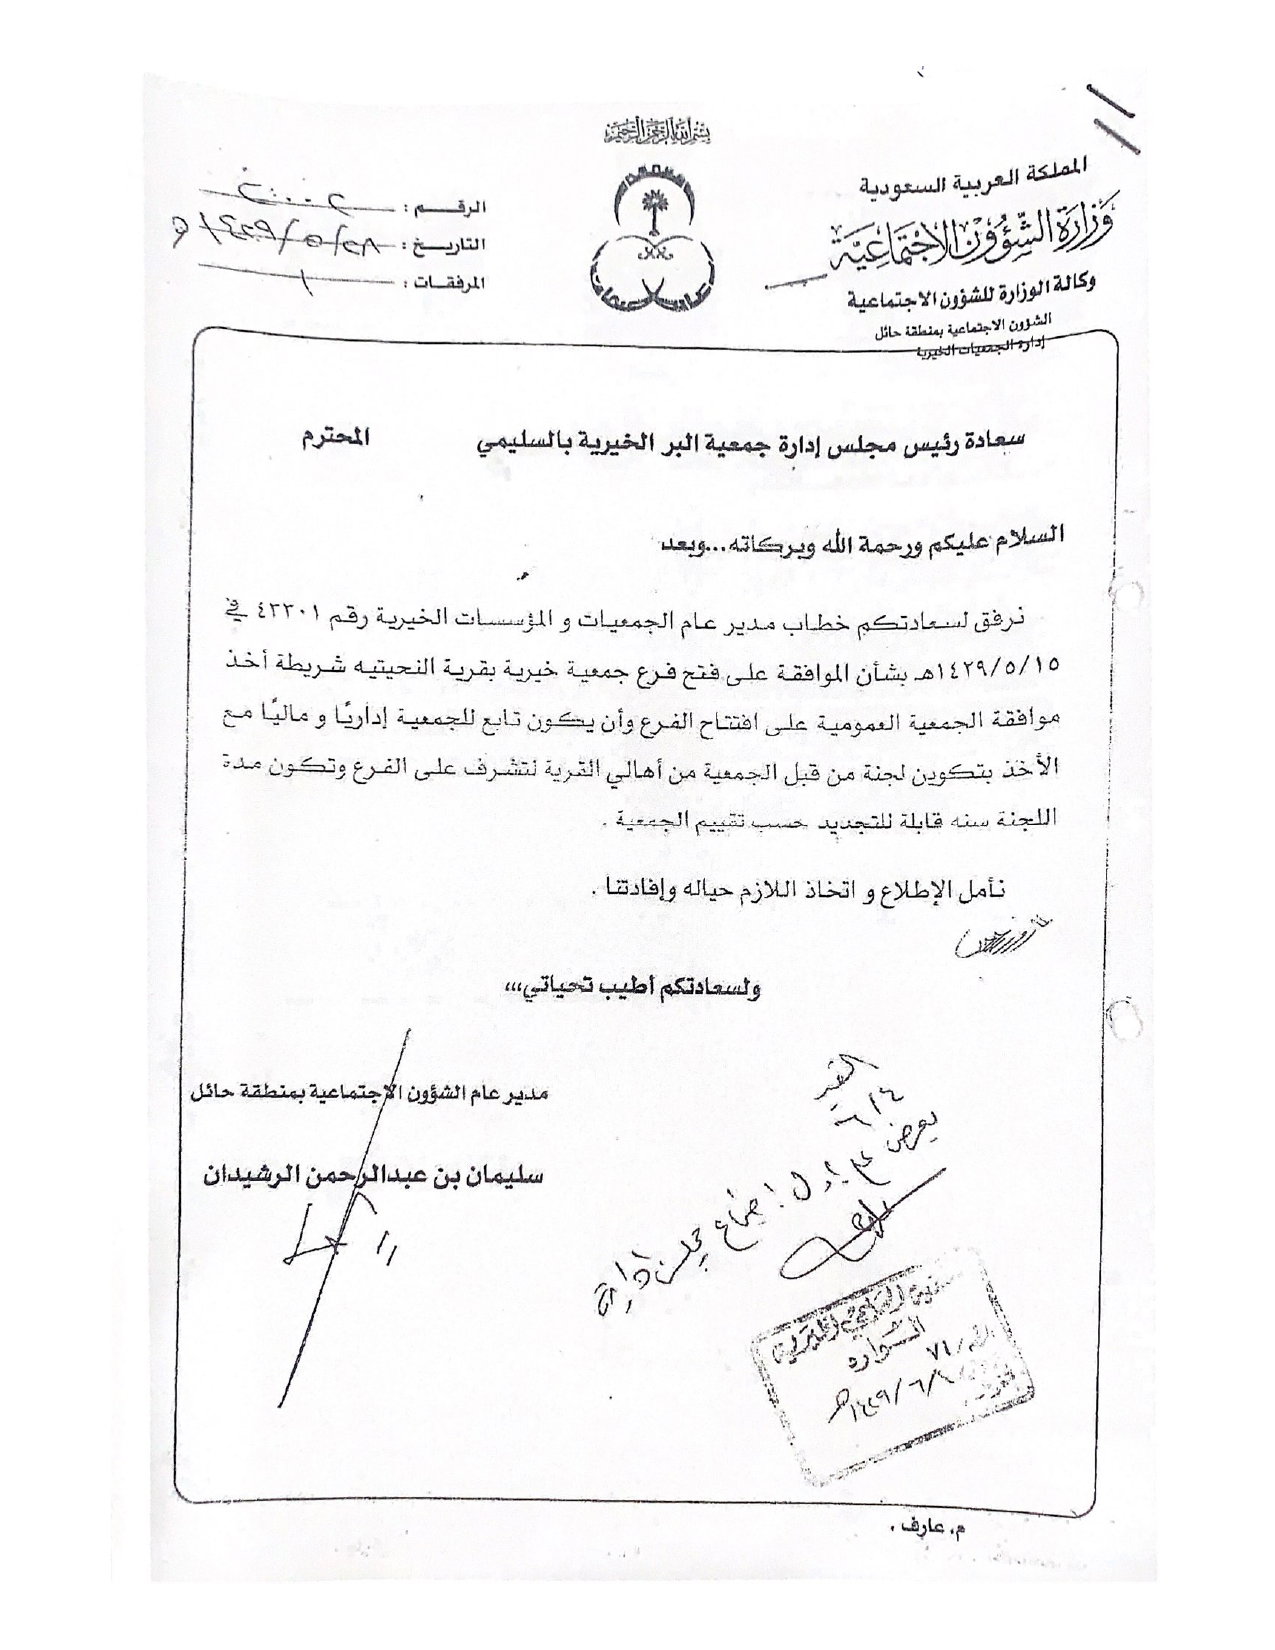 بسم الله الرحمن الرحيم
المملكة العربية السعودية
وزارة الشؤون الاجتماعية
وكالة الوزارة للشؤون الاجتماعية
الشؤون الاجتماعية بمنطقة حائل
إدارة الجمعيات الخيرية
الرقم :
التاريخ : ١٤٢٩/٥/٢٨ هـ
المرفقات : ١
سعادة رئيس مجلس إدارة جمعية البر الخيرية بالسليمي المحترم
السلام عليكم ورحمة الله وبركاته...وبعد
نرفق لسعادتكم خطاب مدير عام الجمعيات و المؤسسات الخيرية رقم ٤٣٣٠١ في
١٤٢٩/٥/١٥هـ بشأن الموافقة على فتح فرع جمعية خيرية بقرية النحيتيه شريطة أخذ
موافقة الجمعية العمومية على افتتاح الفرع وأن يكون تابع للجمعية إداريًا و ماليًا مع
الأخذ بتكوين لجنة من قبل الجمعية من أهالي القرية لتشرف على الفرع وتكون مدة
اللجنة سنه قابلة للتجديد حسب تقييم الجمعية .
نأمل الإطلاع و اتخاذ اللازم حياله وإفادتنا .
ولسعادتكم أطيب تحياتي،،،
مدير عام الشؤون الاجتماعية بمنطقة حائل
سليمان بن عبدالرحمن الرشيدان
القيد
٦/٤
يعرض على أول اجتماع مجلس إدارة
الخيرية
الوارد
٧١
١٤٢٩/٦/ هـ
م. عارف .